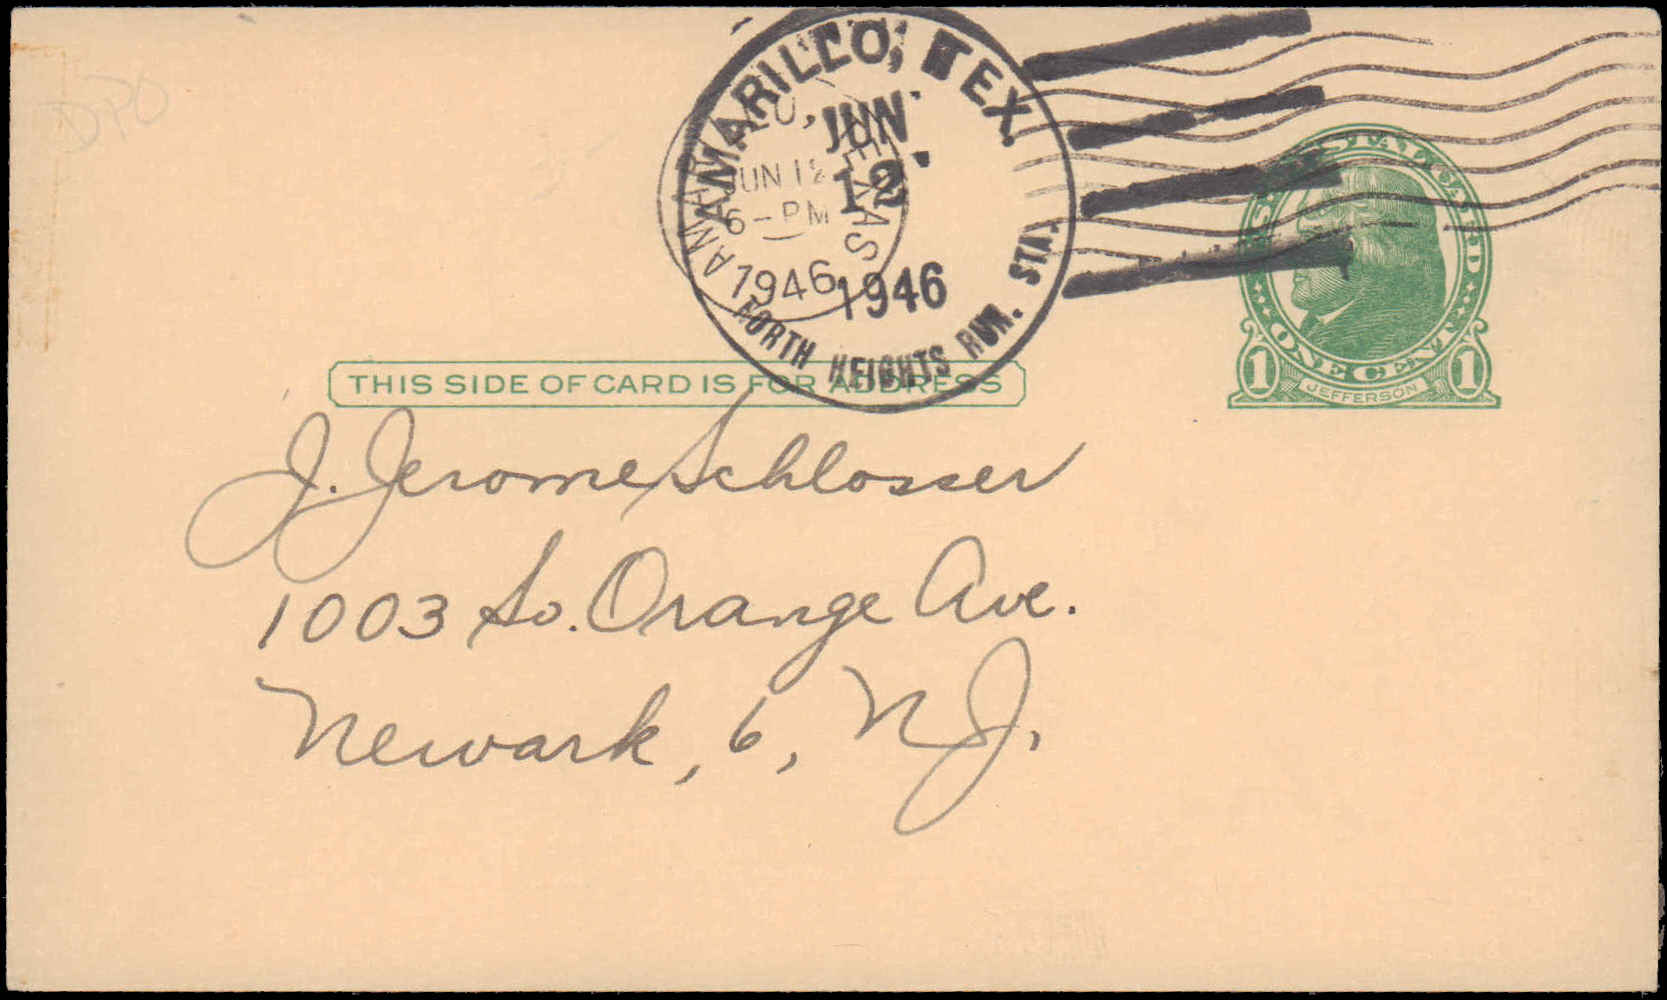 DPO
AMARILLO, TEX.
JUN
12
1946
NORTH HEIGHTS RUR. STA.
AMARILLO, TEXAS
JUN 12
6-PM
1946
U.S. POSTAL CARD
ONE CENT
1 JEFFERSON 1
THIS SIDE OF CARD IS FOR ADDRESS
J. Jerome Schlosser
1003 So. Orange Ave.
Newark, 6, N.J.